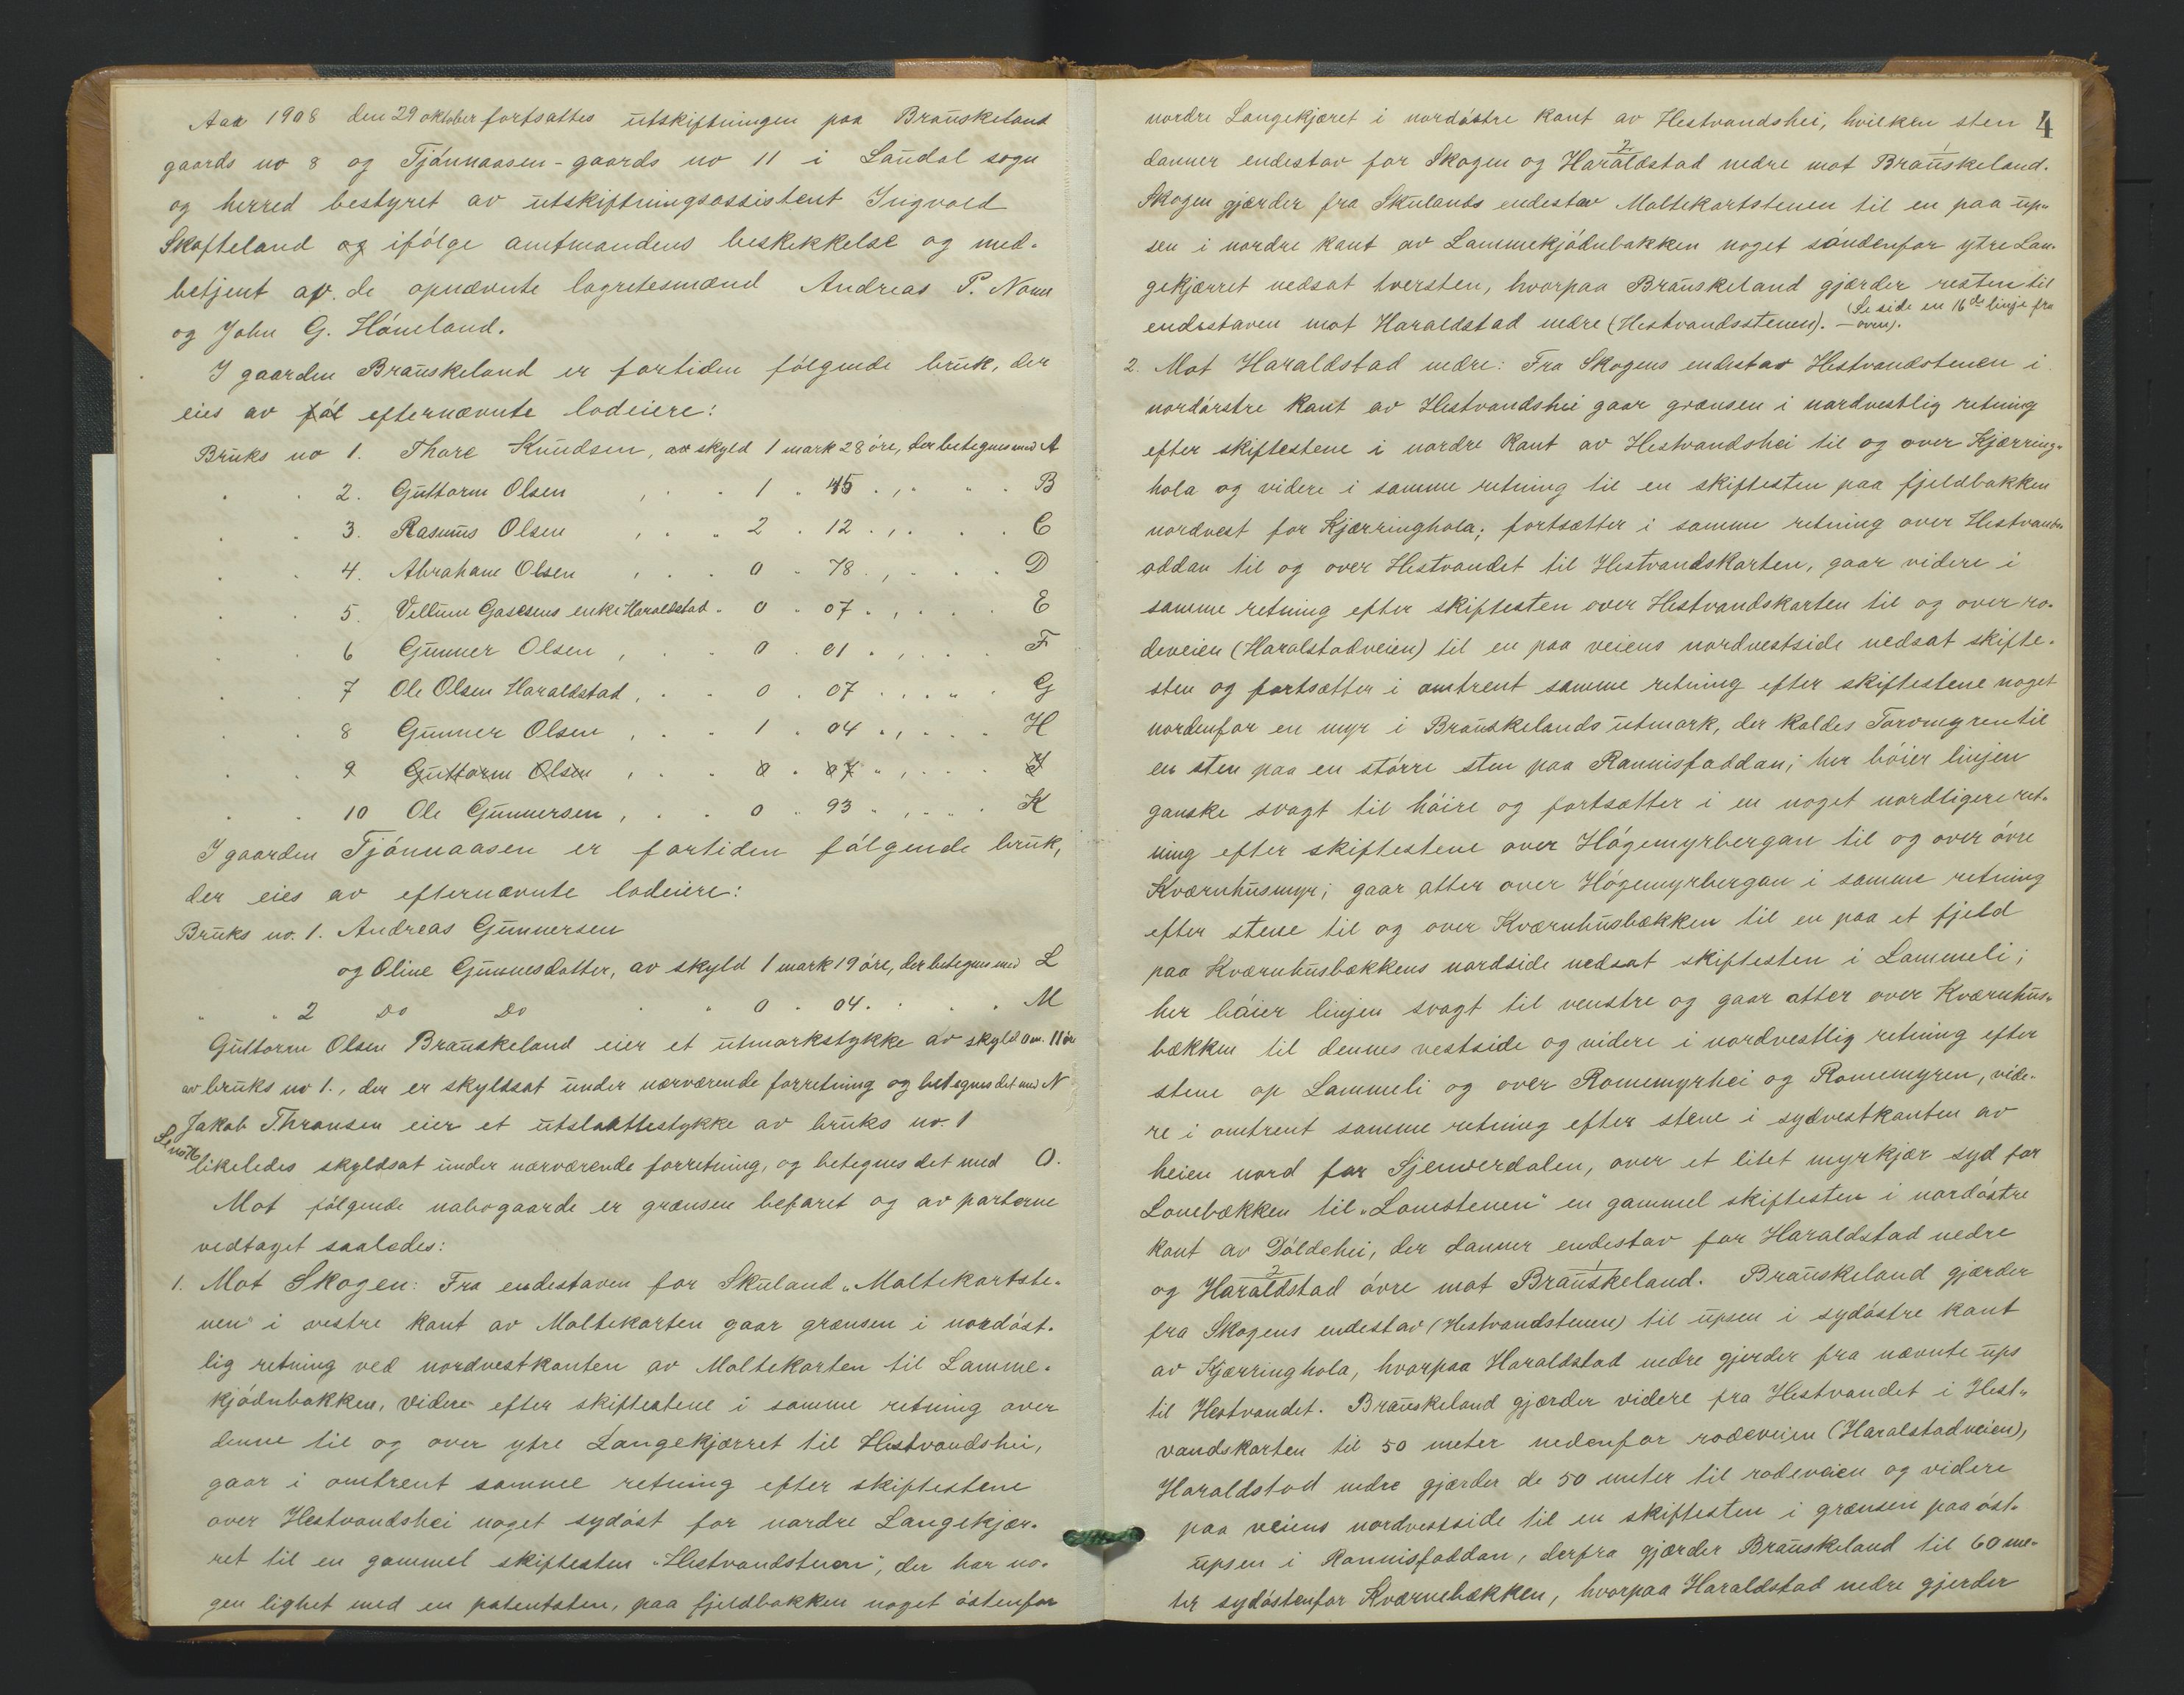 Aar 1908 den 29 oktober fortsattes utskiftningen paa Brauskeland
gaards no 8 og Tjónnaasen - gaards no 11 i Laudal sogn
og herred bestyret av utskiftningsassistent Ingvald
Skofteland og ifólge amtmandens beskikkelse og med-
betjent av de opnævnte lagretesmænd Andreas P. Nome
og John G. Hóneland.
I gaarden Brauskeland er fortiden fólgende bruk, der
eies av fól efternævnte lodeiere:
Bruks no 1. Thore Knudsen, av skyld 1 mark 28 óre, der betegnes med A
" " 2. Guttorm Olsen , " " 1 " 45 " , " " " B
" " 3. Rasmus Olsen , " " 2 " 12 " , " " " C
" " 4. Abraham Olsen , " " 0 " 78 " , " " " D
" " 5. Vellum Gasesens enke Haraldstad " 0 " 07 " , " " " E
" " 6 Gunner Olsen , " " 0 " 01 " , " " " F
" " 7 Ole Olsen Haraldstad , " " 0 " 07 " , " " " G
" " 8 Gunner Olsen , " " 1 " 04 " , " " " H
" " 9 Guttorm Olsen , " " 0 " 07 " , " " " I
" " 10 Ole Gunnersen , " " 0 " 93 " , " " " K
I gaarden Tjónnaasen er fortiden fólgende bruk,
der eies av efternævnte lodeiere:
Bruks no. 1. Andreas Gunnersen
og Oline Gunnesdatter, av skyld 1 mark 19 óre, der betegnes med L
" " 2 Do Do " " 0 " 04 " : " " M
Guttorm Olsen Brauskeland eier et utmarkstykke av skyld 0 m. 11 óre
av bruks no 1., der er skyldsat under nærværende forretning og betegnes det med N
Jakob Thransen eier et utslaattestykke av bruks no. 1
Se no 16
likeledes skyldsat under nærværende forretning, og betegnes det med O.
Mot fólgende nabogaarde er grænsen befaret og av parterne
vedtaget saaledes:
1. Mot Skogen: Fra endestaven for Skuland „Moltekartste-
nen" i vestre kant av Moltekarten gaar grænsen i nordóst-
lig retning ved nordvestkanten av Moltekarten til Lamme-
kjódnbakken, videre efter skiftestene i samme retning over
denne til og over ytre Langekjærret til Hestvandshei,
gaar i omtrent samme retning efter skiftestene
over Hestvandshei noget sydóst for nordre Langekjær-
ret til en gammel skiftesten „Hestvandstenen", der har no-
gen lighet med en patentsten, paa fjeldbakken noget óstenfor
4
nordre Langekjæret i nordóstre kant av Hestvandshei, hvilken sten
danner endestav for Skogen og Haraldstad nedre mot Brauskeland.
Skogen gjærder fra Skulands endestav Moltekartstenen til en paa up-
sen i nordre kant av Lammekjódnbakken noget sóndenfor ytre Lan-
gekjærret nedsat tversten, hvorpaa Brauskeland gjærder resten til
endestaven mot Haraldstad nedre (Hestvandsstenen). (Se side en 16de linje fra
oven).
2. Mot Haraldstad nedre: Fra Skogens endestav Hestvandstenen i
nordóstre kant av Hestvandshei gaar grænsen i nordvestlig retning
efter skiftestene i nordre kant av Hestvandshei til og over Kjærring-
hola og videre i samme retning til en skiftesten paa fjeldbakken
nordvest for Kjærringhola; fortsætter i samme retning over Hestvands-
oddan til og over Hestvandet til Hestvandskarten, gaar videre i
samme retning efter skiftesten over Hestvandskarten til og over ro-
deveien (Haralstadveien) til en paa veiens nordvestside nedsat skifte-
sten og fortsætter i omtrent samme retning efter skiftestene noget
nordenfor en myr i Brauskelands utmark, der kaldes Torvmyren til
en sten paa en stórre sten paa Rannisfoddan; her bóier linjen
ganske svagt til hóire og fortsætter i en noget nordligere ret-
ning efter skiftestene over Hógemyrbergan til og over óvre
Kværnhusmyr; gaar atter over Hógemyrbergan i samme retning
efter stene til og over Kværnhusbækken til en paa et fjeld
paa Kværnhusbækkens nordside nedsat skiftesten i Lammeli;
her bóier linjen svagt til venstre og gaar atter over Kværnhus-
bækken til dennes vestside og videre i nordvestlig retning efter
stene op Lammeli og over Romemyrhei og Romemyren, vide-
re i omtrent samme retning efter stene i sydvestkanten av
heien nord for Sjenverdalen, over et litet myrkjær syd for
Lonebækken til „Lonestenen" en gammel skiftesten i nordóstre
kant av Dóldehei, der danner endestav for Haraldstad nedre
og Haraldstad óvre mot Brauskeland. Brauskeland gjærder
fra Skogens endestav (Hestvandstenen) til upsen i sydóstre kant
av Kjærringhola, hvorpaa Haraldstad nedre gjerder fra nævnte ups
til Hestvandet. Brauskeland gjærder videre fra Hestvandet i Hest-
vandskarten til 50 meter nedenfor rodeveien (Haralstadveien),
Haraldstad nedre gjærder de 50 meter til rodeveien og videre
paa veiens nordvestside til en skiftesten i grænsen paa óst-
upsen i Rannisfoddan, derfra gjærder Brauskeland til 60 me-
ter sydóstenfor Kværnebækken, hvorpaa Haraldstad nedre gjerder